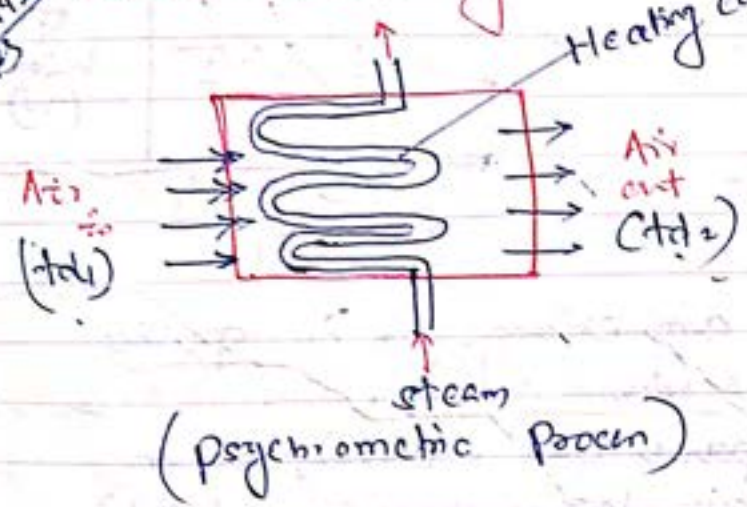 Heating
Air
in
(td1)
Air
out
(td2)
steam
(Psychrometric Process)